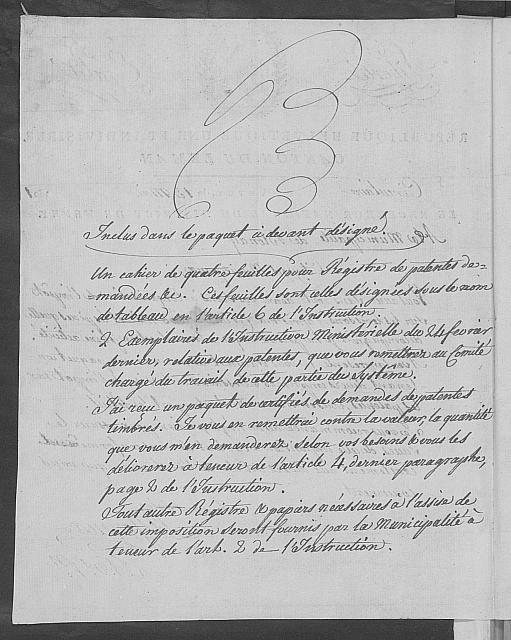 Inclus dans le paquet ci devant désigné
Un cahier de quatre feuilles pour Régistre de patentes de=
mandées &c. Ces feuilles sont celles désignées sous le nom
de tableau en l'article 6 de l'Instruction.
2 Exemplaires de l'Instruction Ministérielle du 24 fevrier
dernier, relative aux patentes, que vous remettrez au Comité
chargé du travail de cette partie du Systeme.
J'ai reçu un paquet de certifiés de demandes de patentes
timbrés. Je vous en remettrai contre la valeur, la quantité
que vous m'en demanderez selon vos besoins & vous les
délivrerez à teneur de l'article 4, dernier paragraphe,
page 2 de l'Instruction.
Tout autre Régistre & papiers nécessaires à l'assise de
cette imposition seront fournis par la Municipalité à
teneur de l'art. 2 de l'Instruction.